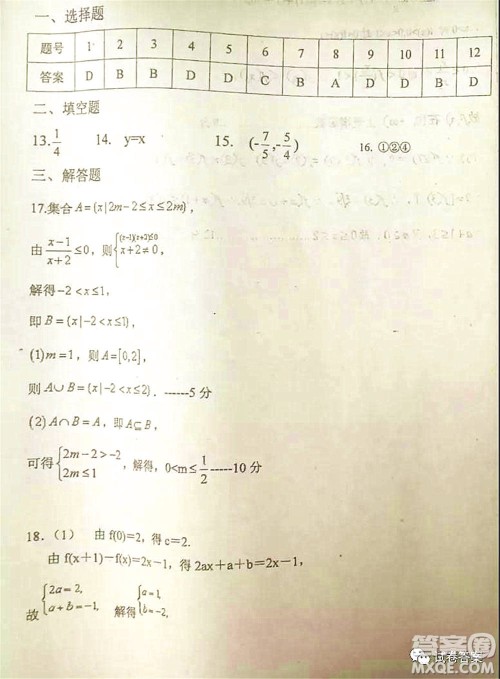 一、选择题
题号 1 2 3 4 5 6 7 8 9 10 11 12
答案 D B B D D C B A D D B D
二、填空题
13. 1/4 14. y=x 15. (-7/5,-5/4) 16. ①②④
三、解答题
17.集合A={x|2m-2≤x≤2m},
由 (x-1)/(x+2) ≤0, 则{(x-1)(x+2)≤0 x+2≠0,
解得-2<x≤1,
即B={x|-2<x≤1},
(1)m=1, 则A=[0,2],
则A∪B={x|-2<x≤2}. ------5分
(2)A∩B=A, 即A⊆B,
可得{2m-2>-2 2m≤1, 解得, 0<m≤1/2-----10分
18. (1) 由 f(0)=2, 得 c=2.
由 f(x+1)-f(x)=2x-1, 得 2ax+a+b=2x-1,
故{2a=2, a+b=-1, 解得{a=1, b=-2.
答案圈
MXQE.COM